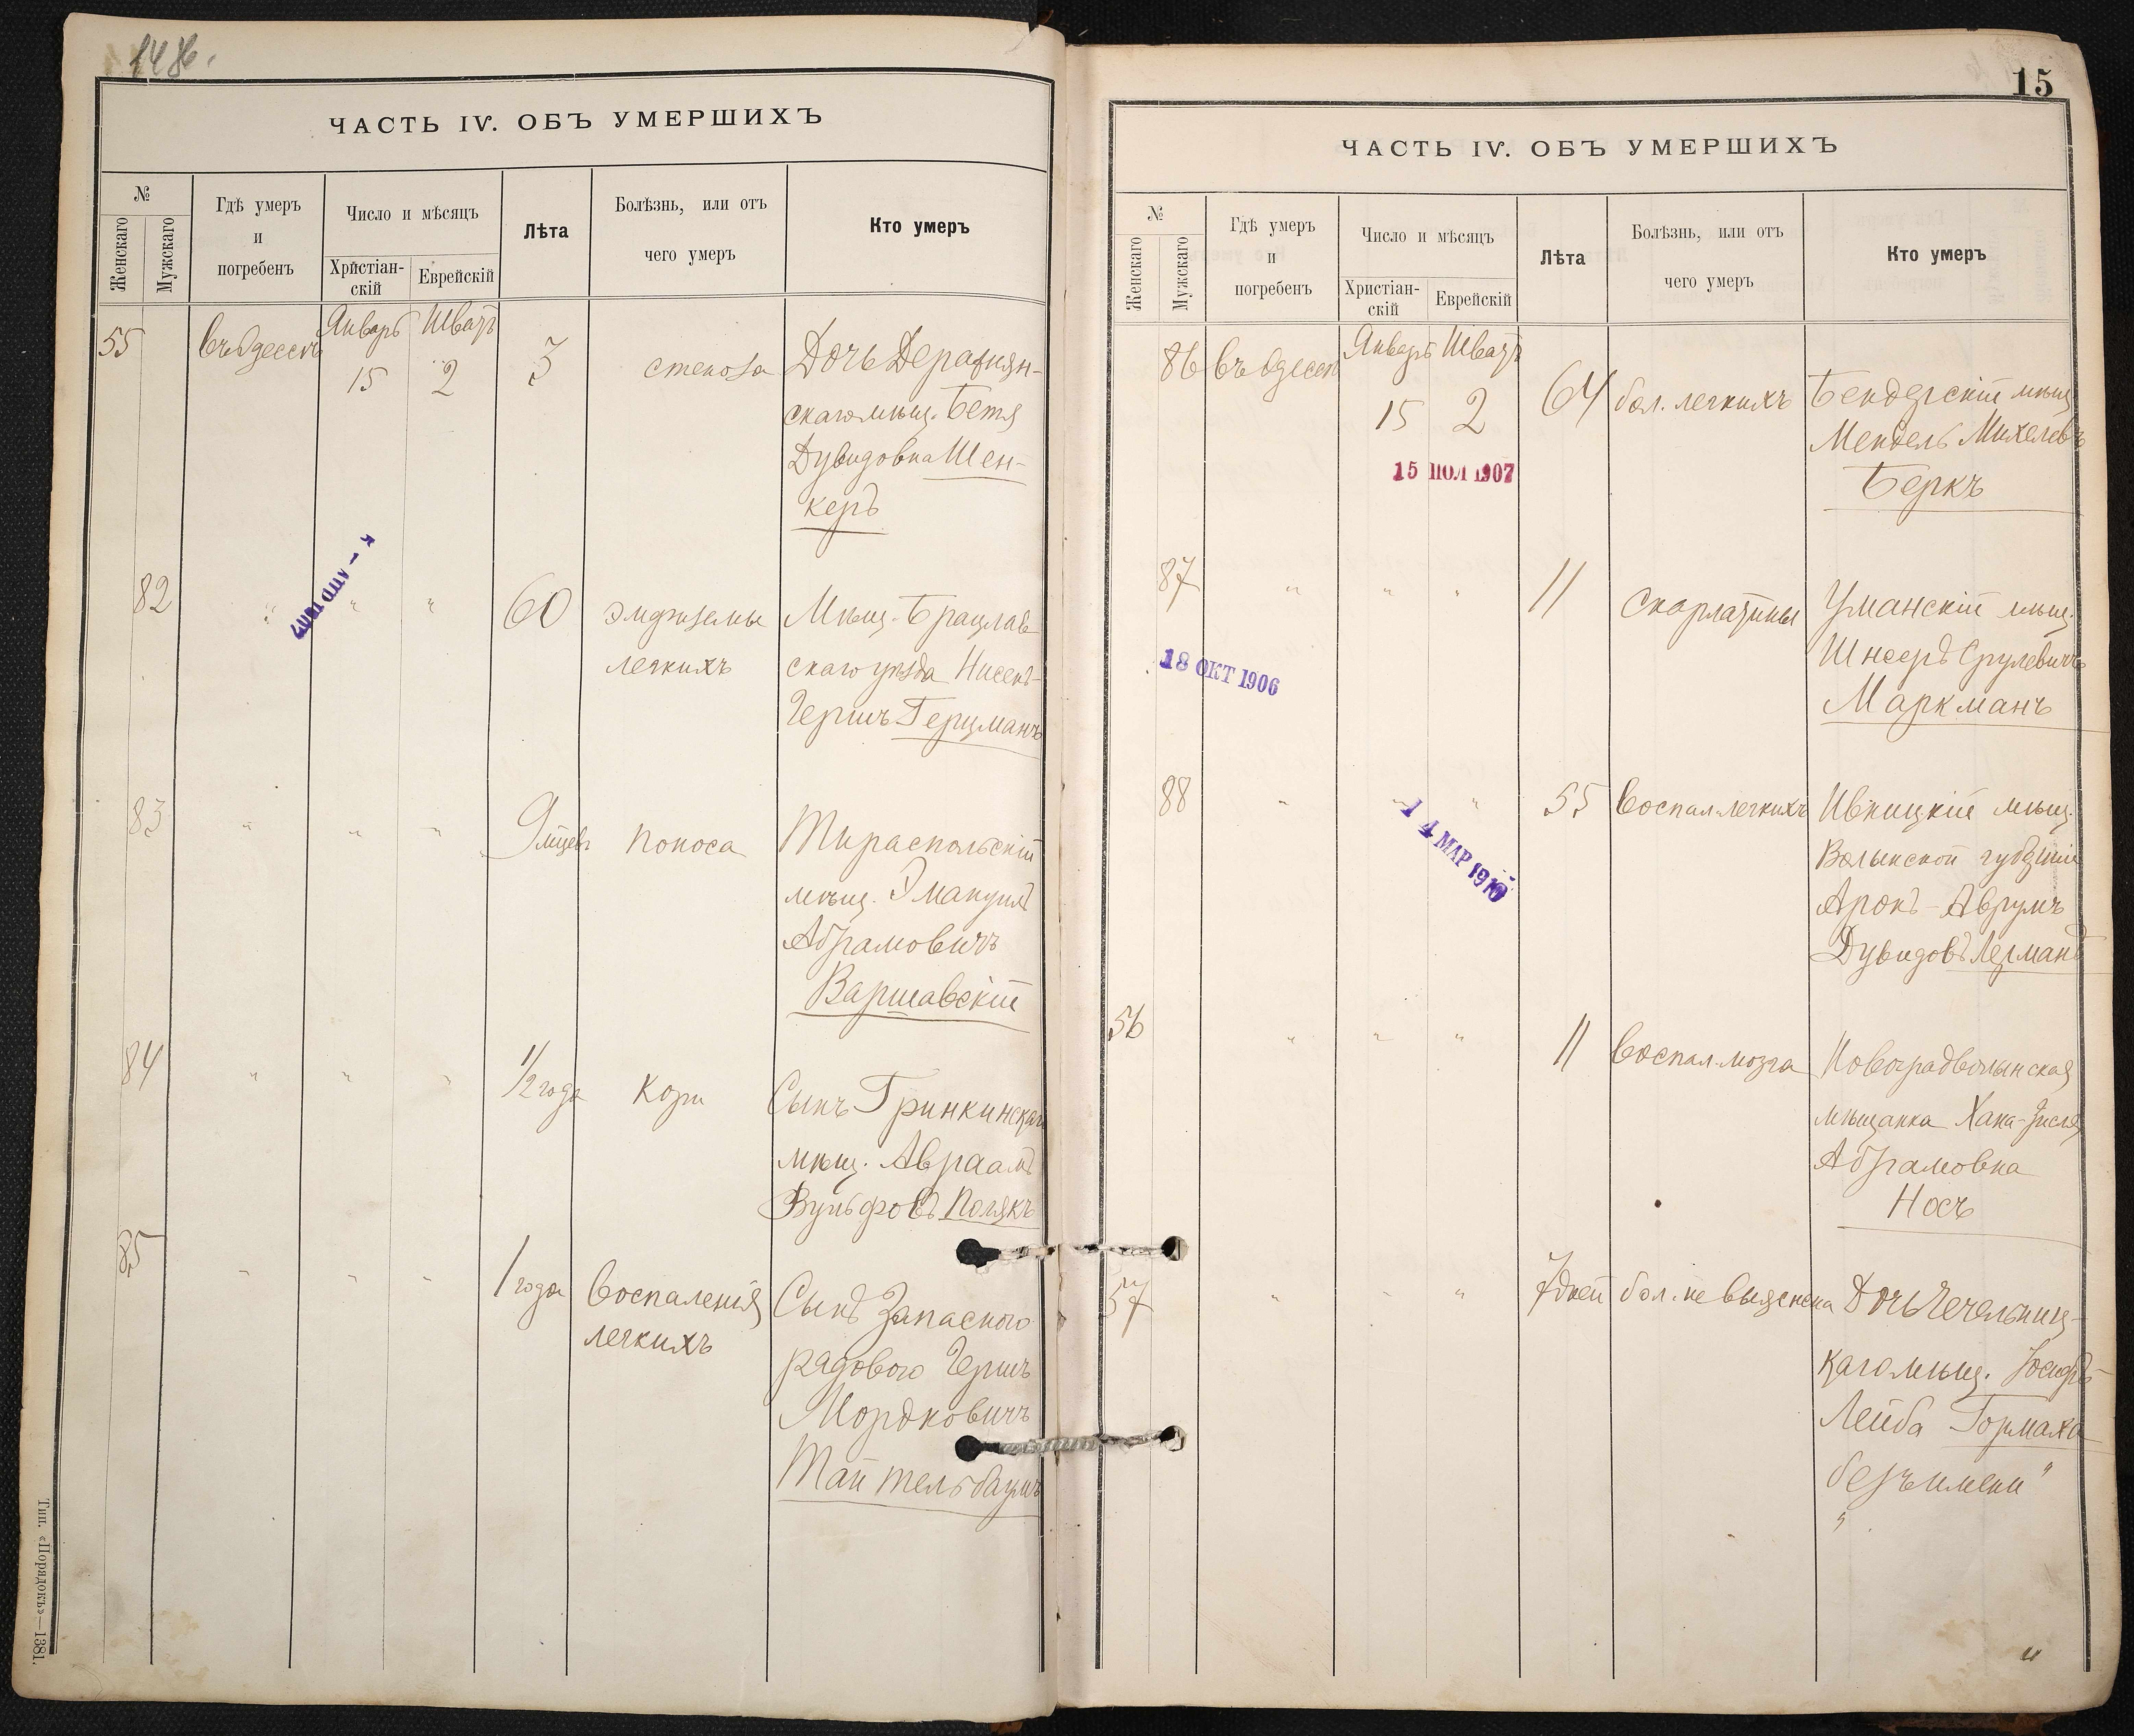 14 об.
ЧАСТЬ IV. ОБЪ УМЕРШИХЪ
№
Женскаго
Мужскаго
Гдѣ умеръ
и
погребенъ
Число и мѣсяцъ
Христіан-
скій
Еврейскій
Лѣта
Болѣзнь, или отъ
чего умеръ
Кто умеръ
55
въ Одессѣ
Январь Шватъ
15 2
3
стеноза
Дочь Деражнян-
скаго мѣщ. Бетя
Дувидовна Шен-
керъ
82
" " "
60
эмфиземы
легкихъ
Мѣщ. Брацлав
скаго уѣзда Нисень-
Гершъ Герцманъ
83
" " "
9 мцевъ
поноса
Тираспольскій
мѣщ. Эмануилъ
Абрамовичъ
Варшавскій
84
" " "
1/2 года
Кори
Сынъ Гринкинскаго
мѣщ. Авраамъ
Вульфовъ Полякъ
85
" " "
1 года
Воспаленія
легкихъ
Сынъ Запасного
рядового Гершъ
Мордковичъ
Тайтельбаумъ
Тип. «Порядокъ»—1381.
15
ЧАСТЬ IV. ОБЪ УМЕРШИХЪ
№
Женскаго
Мужскаго
Гдѣ умеръ
и
погребенъ
Число и мѣсяцъ
Христіан-
скій
Еврейскій
Лѣта
Болѣзнь, или отъ
чего умеръ
Кто умеръ
86
въ Одессѣ
Январь Шватъ
15 2
15 ІЮЛ 1907
64
бол. легкихъ
Бендерскій мѣщ
Мендель Михелевъ
Беркъ
87
" " "
18 ОКТ 1906
11
Скарлатины
Уманскій мѣщ.
Шнееръ Срулевичъ
Маркманъ
88
" " "
14 МАР 1910
55
Воспал. легкихъ
Ивницкій мѣщ.
Волынской губерніи
Аронъ-Аврумъ
Дувидовъ Лерманъ
56
" " "
11
Воспал. мозга
Новоградволынская
мѣщанка Хана-Зисля
Абрамовна
Носъ
57
" " "
7 дней
бол. не выяснена
Дочь Чечельниц-
каго мѣщ. Іосифъ-
Лейба Гормаха
безъ имени"
"